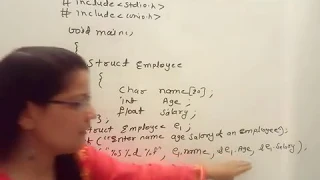 # include<stdio.h>
# include<conio.h>
void main()
struct Employee
{
char name[20];
int Age;
float salary;
};
struct Employee e1;
("Enter name age salary of an employee");
"%s%d%f", e1.name, &e1.Age, &e1.salary);